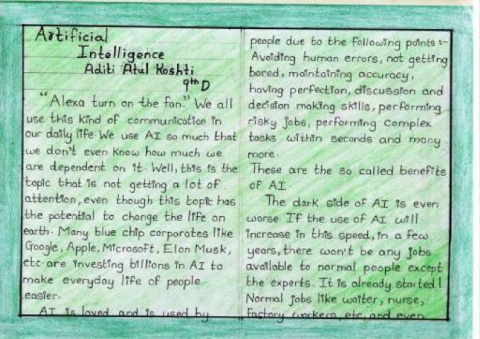 Artificial
Intelligence
Aditi Atul Koshti
9th D
"Alexa turn on the fan." We all
use this kind of communication in
our daily life. We use AI so much that
we don't even know how much we
are dependent on it. Well, this is the
topic that is not getting a lot of
attention, even though this topic has
the potential to change the life on
earth. Many blue chip corporates like
Google, Apple, Microsoft, Elon Musk,
etc. are investing billions in AI to
make everyday life of people
easier.
AI is loved and is used by
people due to the following points :-
Avoiding human errors, not getting
bored, maintaining accuracy,
having perfection, discussion and
decision making skills, performing
risky jobs, performing complex
tasks within seconds and many
more.
These are the so called benefits
of AI
The dark side of AI is even
worse. If the use of AI will
increase in this speed, in a few
years, there won't be any jobs
available to normal people except
the experts. It is already started!
Normal jobs like waiter, nurse,
factory workers, etc. and even